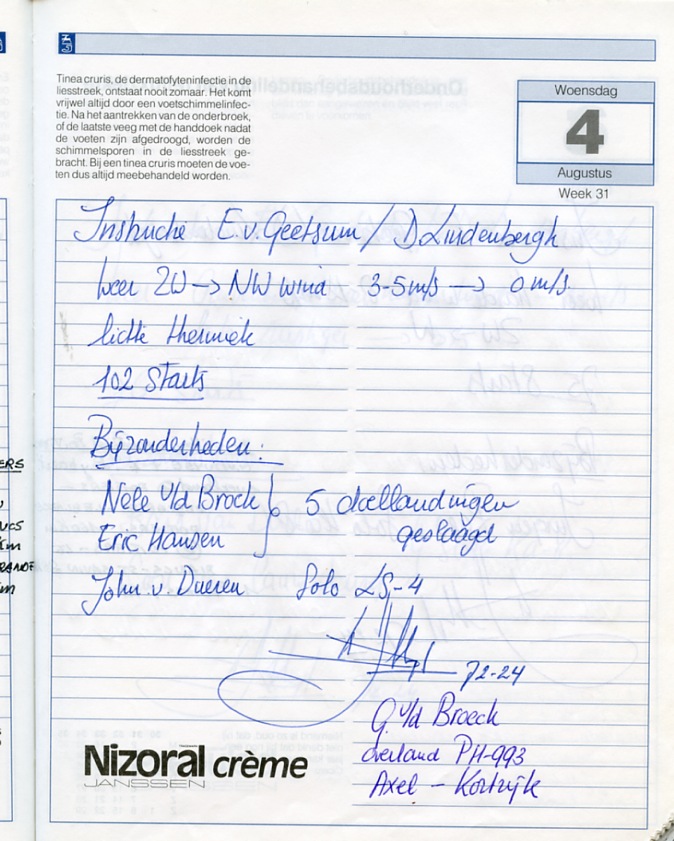 Tinea cruris, de dermatofyteninfectie in de
liesstreek, ontstaat nooit zomaar. Het komt
vrijwel altijd door een voetschimmelinfec-
tie. Na het aantrekken van de onderbroek,
of de laatste veeg met de handdoek nadat
de voeten zijn afgedroogd, worden de
schimmelsporen in de liesstreek ge-
bracht. Bij een tinea cruris moeten de voe-
ten dus altijd meebehandeld worden.
Woensdag
4
Augustus
Week 31
Instructie E.v. Geetsum / D. Lindenbergh
weer ZW → NW wind 3-5 m/s → 0 m/s.
lichte thermiek
102 Starts
Bijzonderheden:
Nele v/d Broek } 5 doellandingen
Eric Hansen geslaagd
John v. Dueren Solo LS-4
72-24
G. v/d Broeck
overland PH-993
Axel - Kortrijk
Nizoral crème
JANSSEN
ERS
RANDE